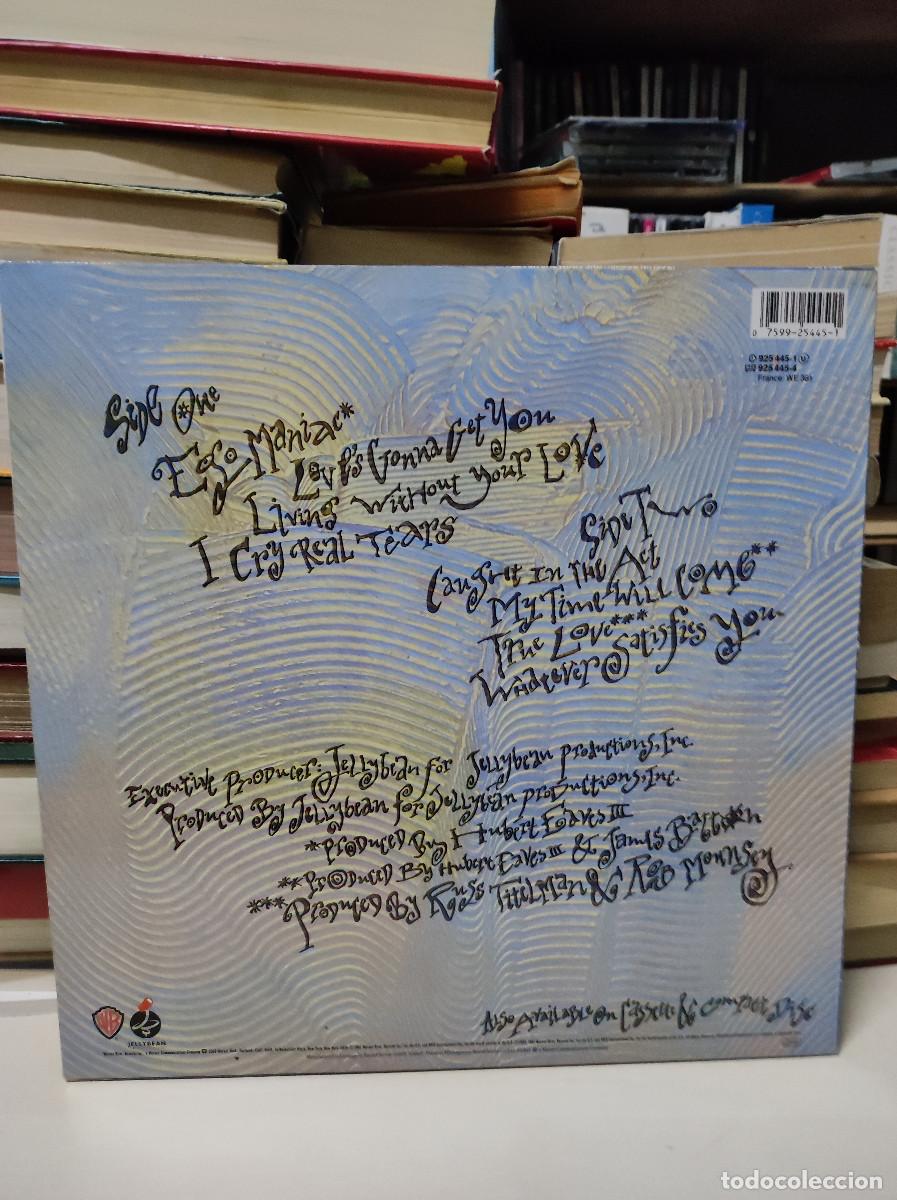 0 7599-25445-1
925 445-1
925 445-4
France: WE 381
Side One
Ego Maniac*
Love's Gonna Get You
Living Without Your Love
I Cry Real Tears
Side Two
Caught In The Act
My Time Will Come**
True Love***
Whatever Satisfies You
Executive Producer: Jellybean for Jellybean Productions, Inc.
Produced By Jellybean for Jellybean Productions, Inc.
*Produced By Hubert Eaves III
**Produced By Hubert Eaves III & James Batton
***Produced By Russ Titelman & Rob Mounsey
WB
JELLYBEAN
Also Available On Cassette & Compact Disc
todocoleccion